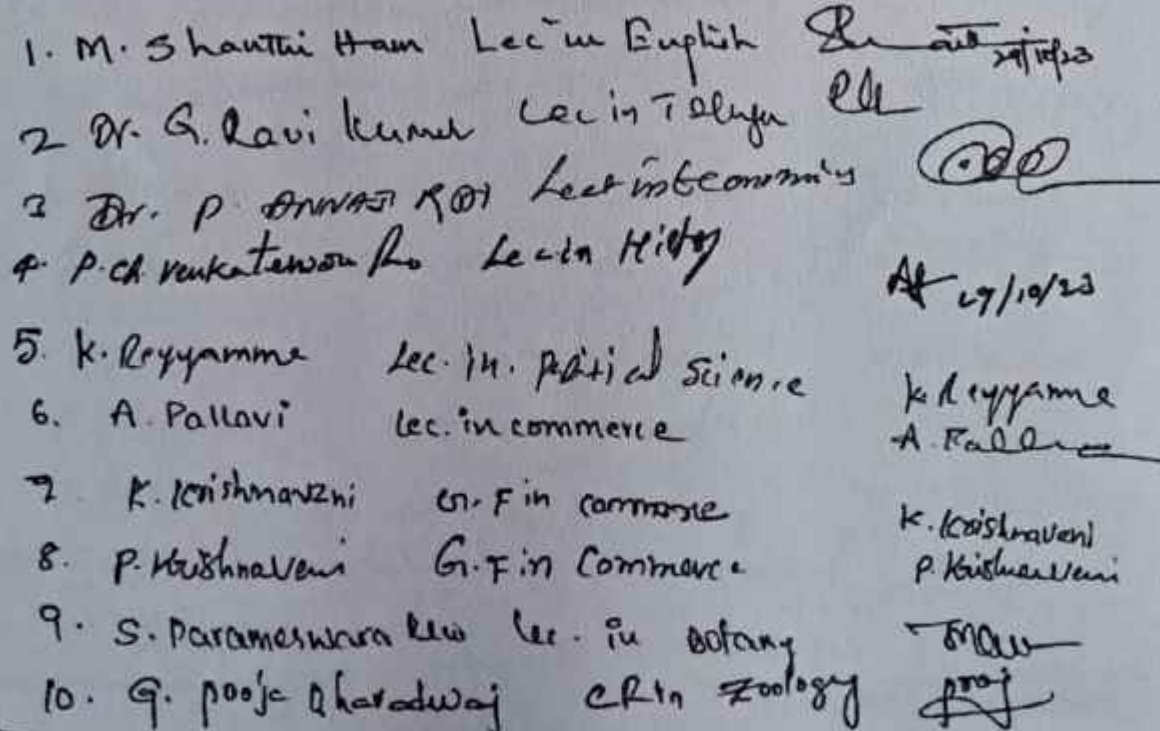 1. M. Shanthi Ham Lec in English 29/10/23
2 Dr. G. Ravi Kumar Lec in Telugu
3 Dr. P. ANNAJI RAO Lect in Economics
4. P. Ch Venkateswara Rao Lec in History 29/10/23
5. K. Reyyamma Lec. in. political Science K. Reyyamma
6. A. Pallavi Lec. in commerce A. Pall
7 K. Krishnaveni G. F in commerce K. Krishnaveni
8. P. Krishnaveni G. F in Commerce P. Krishnaveni
9. S. Parameswara Rao Lec. in Botany
10. G. Pooja Bharadwaj CR in Zoology